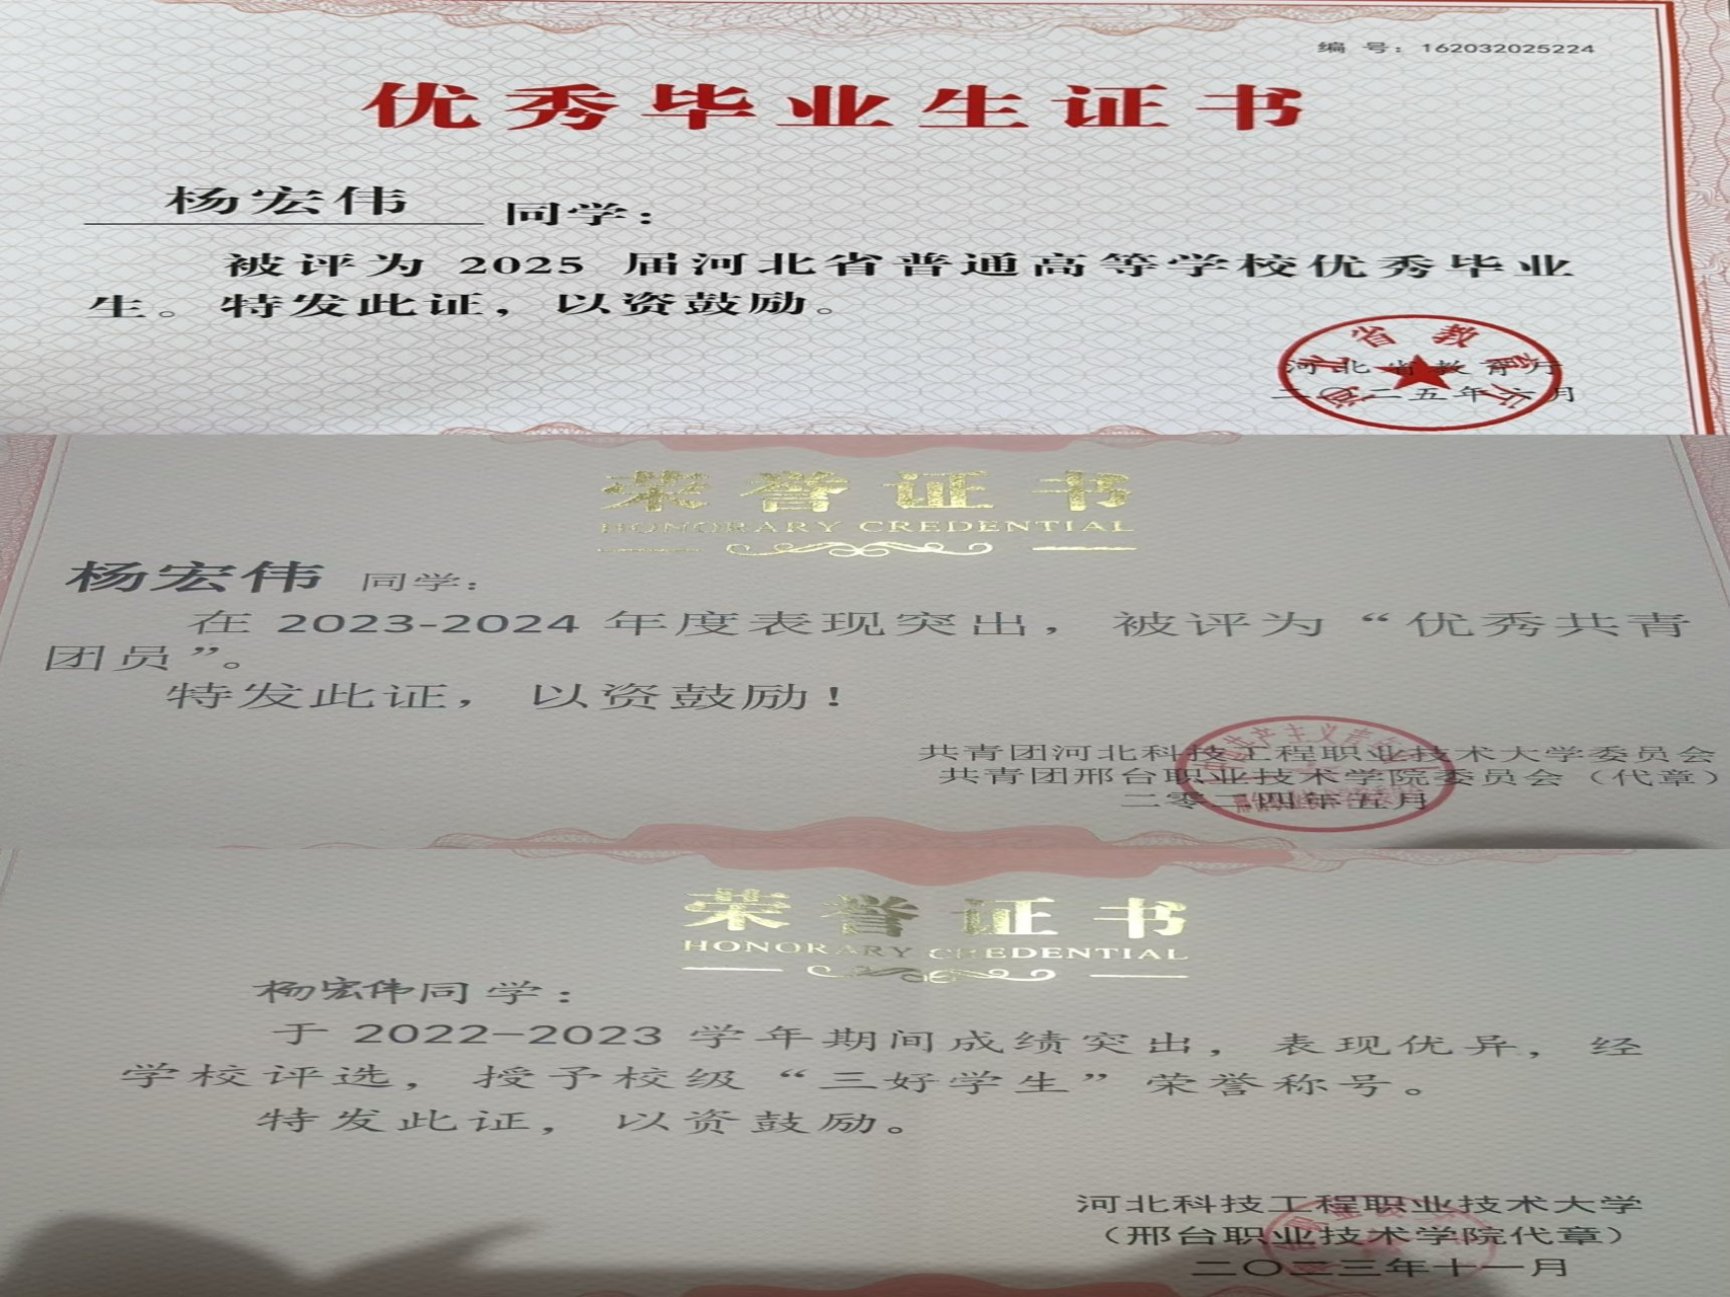 编 号：162032025224
优秀毕业生证书
杨宏伟 同学：
被评为 2025 届河北省普通高等学校优秀毕业
生。特发此证，以资鼓励。
河北省教育厅
河北省教育厅
二〇二五年六月
荣誉证书
HONORARY CREDENTIAL
杨宏伟 同学：
在 2023-2024 年度表现突出，被评为“优秀共青
团员”。
特发此证，以资鼓励！
共青团河北科技工程职业技术大学委员会
共青团邢台职业技术学院委员会（代章）
二零二四年五月
荣誉证书
HONORARY CREDENTIAL
杨宏伟同学：
于 2022—2023 学年期间成绩突出，表现优异，经
学校评选，授予校级“三好学生”荣誉称号。
特发此证，以资鼓励。
河北科技工程职业技术大学
（邢台职业技术学院代章）
二〇二三年十一月